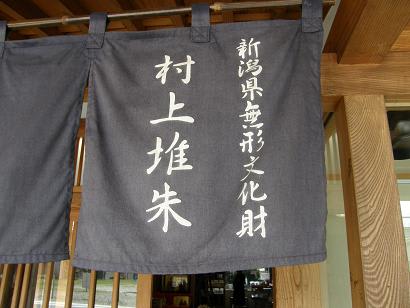 新潟県無形文化財
村上堆朱